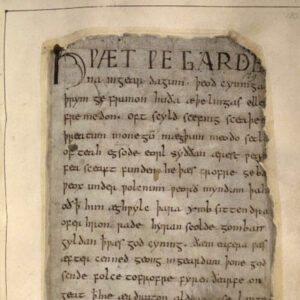 HǷÆT ǷE GARDE
na ingear dagum. þeod cyninga
þrym ge frunon huða æþelingas elle
fremedon. oft scyld scefing sceaþe
þreatum monegū mægþum meodo setla
of teah egsode eorl syððan ærest ƿear
fea sceaft funden he þæs frofre geba
ƿeox under ƿolcnum ƿeorð myndum þah
oð ꝥ him æghƿylc þara ymb sittendra
ofer hron rade hyran scolde gomban
gyldan ꝥ ƿæs god cyning. ðæm eafera ƿæs
æfter cenned geong ingeardum þone god
sende folce tofrofre fyren ðearfe on
geat ꝥ hie ær drugon aldor ase